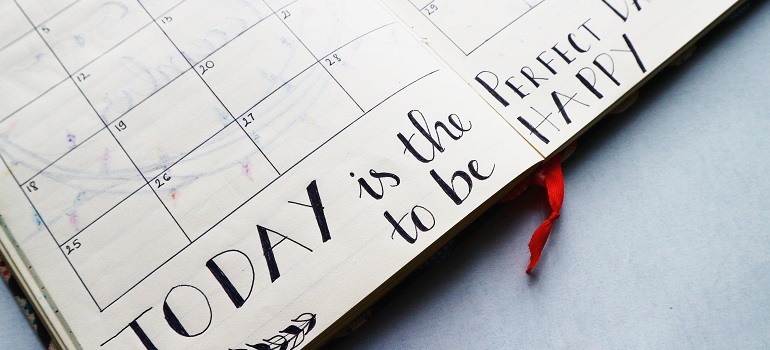 5
12 13
18 19 20 21
25 26 27 28
29
TODAY is the PERFECT DA
to be HAPPY